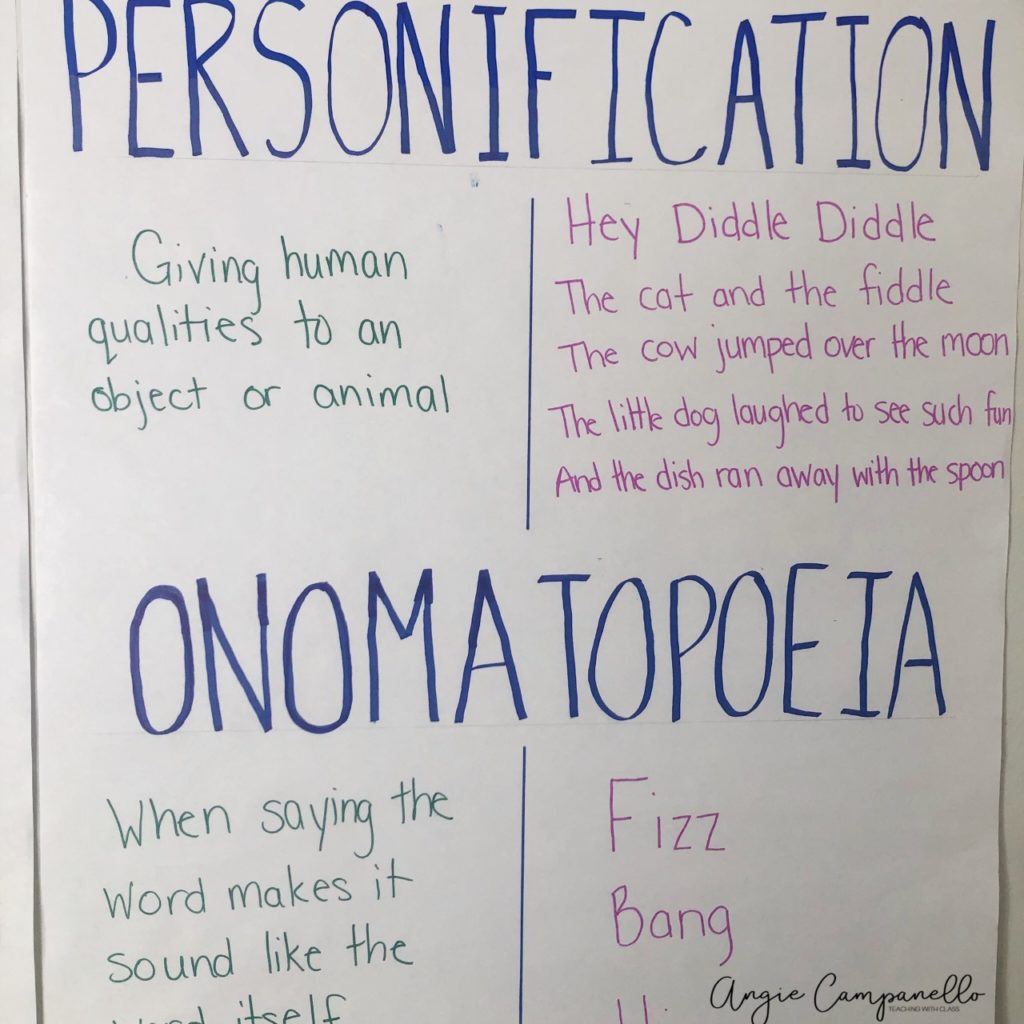 PERSONIFICATION
Giving human
qualities to an
object or animal
Hey Diddle Diddle
The cat and the fiddle
The cow jumped over the moon
The little dog laughed to see such fun
And the dish ran away with the spoon
ONOMATOPOEIA
When saying the
word makes it
sound like the
itself
Fizz
Bang
Angie Campanello
TEACHING WITH CLASS